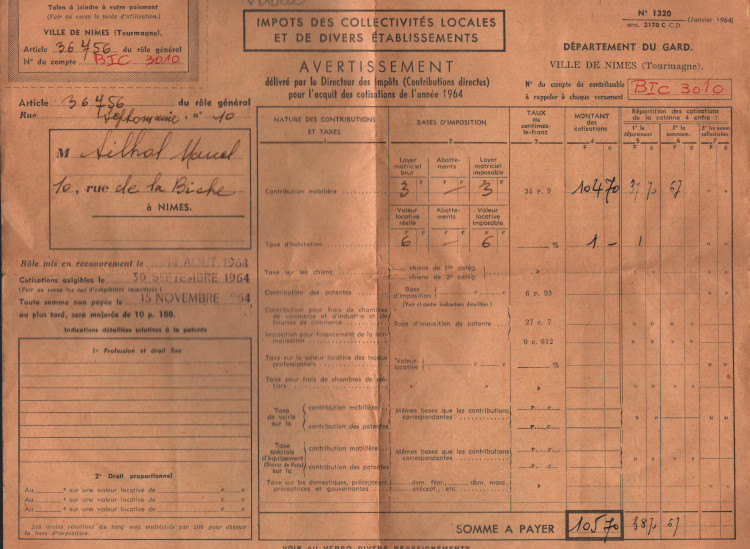 Talon à joindre à votre paiement
(Voir au verso le mode d'utilisation.)
VILLE DE NIMES (Tourmagne).
Article 36456 du rôle général
N° du compte BIC 3010
IMPOTS DES COLLECTIVITÉS LOCALES
ET DE DIVERS ÉTABLISSEMENTS
AVERTISSEMENT
délivré par le Directeur des Impôts (Contributions directes)
pour l'acquit des cotisations de l'année 1964
N° 1320
2170 C C.D. (Janvier 1964)
DÉPARTEMENT DU GARD.
VILLE DE NIMES (Tourmagne).
N° du compte du contribuable
à rappeler à chaque versement
BIC 3010
Article 36456 du rôle général
Rue , n° 10
M Ailhol Marcel
10, rue de la Biche
à NIMES.
Rôle mis en recouvrement le AOUT 1964
Cotisations exigibles le 30 SEPTEMBRE 1964
Toute somme non payée le 15 NOVEMBRE 1964
au plus tard, sera majorée de 10 p. 100.
Indications détaillées relatives à la patente
1° Profession et droit fixe
2° Droit proportionnel
Au " sur une valeur locative de F c
Au " sur une valeur locative de F c
Au " sur une valeur locative de F c
Les droits résultant du tarif sont multipliés par 200 pour obtenir
la base d'imposition.
NATURE DES CONTRIBUTIONS
ET TAXES
1
BASES D'IMPOSITION
2
TAUX
ou
centimes-
le-franc
3
MONTANT
des
cotisations
4
Répartition des cotisations
de la colonne 4 entre :
1° le
département
5
2° la
commune
6
7
F c F c F c F c
Loyer
matriciel
brut
Abatte-
ments
Loyer
matriciel
imposable
Contribution mobilière 3 — 3 34 F. 9 104 70 37 70 67
Valeur
locative
réelle
Abatte-
ments
Valeur
locative
imposable
Taxe d'habitation 6 — 6 % 1 - 1
Taxe sur les chiens chiens de 1re catég.
chiens de 2e catég.
Contribution des patentes Base
d'imposition 6 F. 93
(Voir ci-contre indications détaillées)
Contribution pour frais de chambres
de commerce et d'industrie et de
bourses de commerce Base d'imposition de patente 27 c. 7
Imposition pour financement de la nor-
malisation 0 c. 612
Taxe sur la valeur locative des locaux
professionnels Valeur
locative %
Taxe pour frais de chambres de mé-
tiers
Taxe
de voirie
sur la
contribution mobilière
contribution des patentes
Mêmes bases que les contributions
correspondantes
Taxe
spéciale
d'équipement
sur la
contribution mobilière
contribution des patentes
Mêmes bases que les contributions
correspondantes
Taxe sur les domestiques, précepteurs,
préceptrices et gouvernantes
dom. fém., dom. masc.
précept., etc.
SOMME A PAYER 105 70 38 70 67
VOIR AU VERSO DIVERS RENSEIGNEMENTS